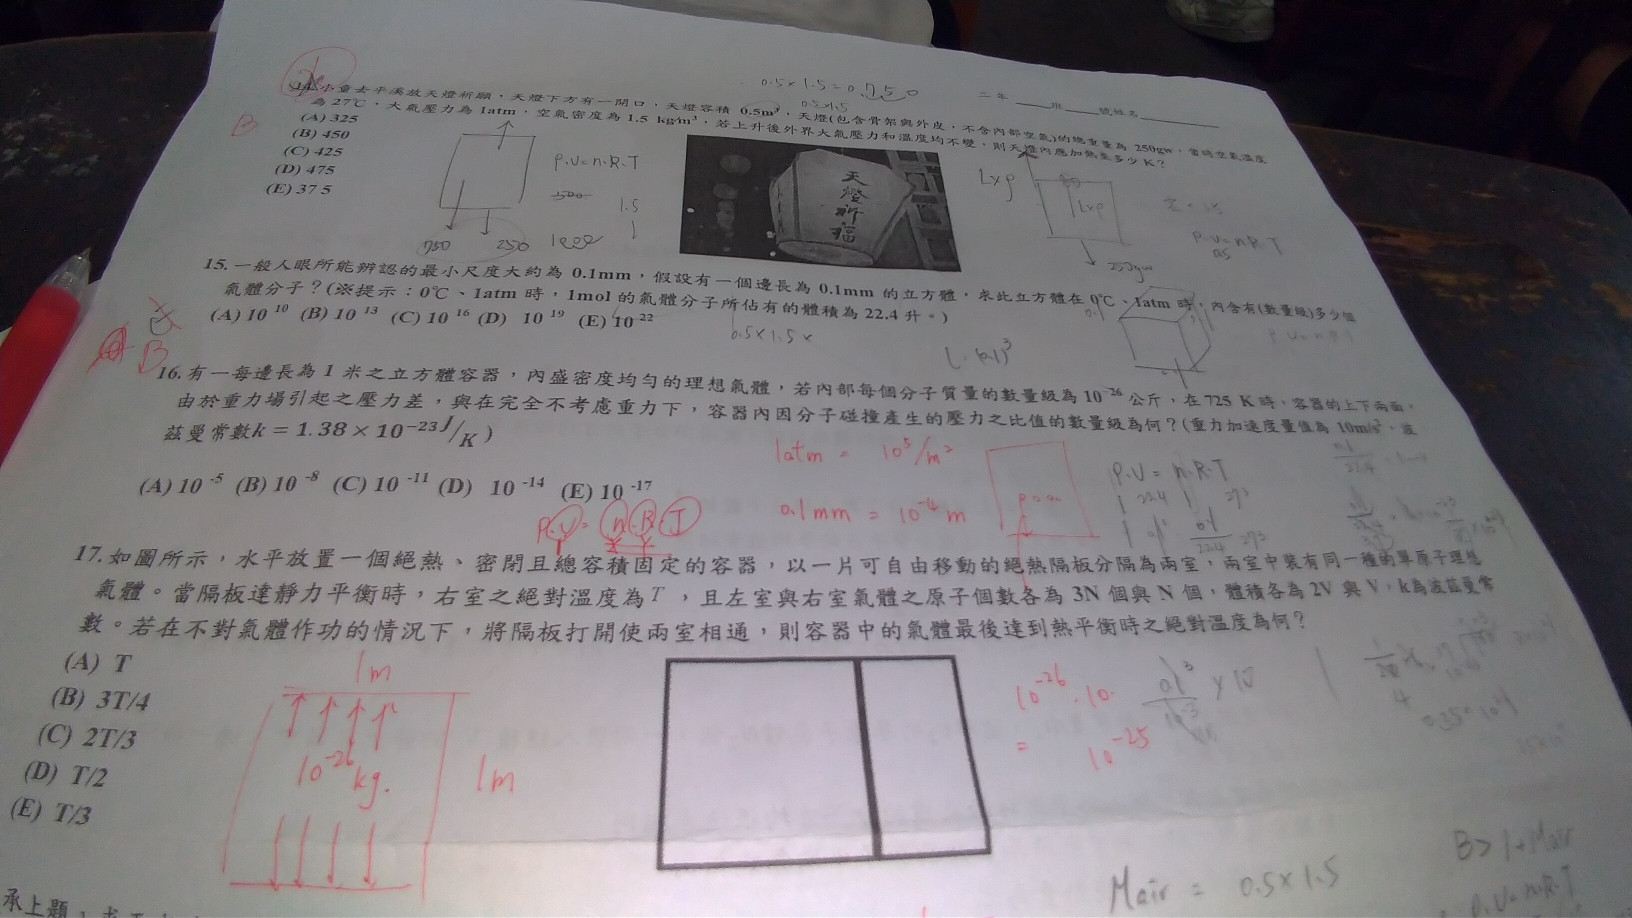 0.5×1.5=0.750
二年 ___班___號姓名________
小童去平溪放天燈祈願,天燈下方有一開口,天燈容積 0.5m³,天燈(包含骨架與外皮,不含內部空氣)的總重量為 250gw,當時空氣溫度
為 27℃,大氣壓力為 1atm,空氣密度為 1.5 kg/m³,若上升後外界大氣壓力和溫度均不變,則天燈內應加熱至多少 K?
(A) 325
(B) 450
(C) 425
(D) 475
(E) 375
B
P.V=n.R.T
1.5
750
250
天燈祈福
P.V=n.R.T
250gw
15.一般人眼所能辨認的最小尺度大約為 0.1mm,假設有一個邊長為 0.1mm 的立方體,求此立方體在 0℃、1atm 時,內含有(數量級)多少個
氣體分子?(※提示:0℃、1atm 時,1mol 的氣體分子所佔有的體積為 22.4 升。)
(A) 10 ¹⁰ (B) 10 ¹³ (C) 10 ¹⁶ (D) 10 ¹⁹ (E) 10 ²²
0.5×1.5×
B
16.有一每邊長為 1 米之立方體容器,內盛密度均勻的理想氣體,若內部每個分子質量的數量級為 10⁻²⁶ 公斤,在 725 K 時,容器的上下兩面,
由於重力場引起之壓力差,與在完全不考慮重力下,容器內因分子碰撞產生的壓力之比值的數量級為何?(重力加速度量值為 10m/s²,波
茲曼常數k = 1.38 × 10⁻²³ J/K )
(A) 10 ⁻⁵ (B) 10 ⁻⁸ (C) 10 ⁻¹¹ (D) 10 ⁻¹⁴ (E) 10 ⁻¹⁷
1atm = 10⁵/m²
0.1mm = 10⁻⁴ m
P.V=n.R.T
P.V = n.R.T
1 22.4 1 273
17.如圖所示,水平放置一個絕熱、密閉且總容積固定的容器,以一片可自由移動的絕熱隔板分隔為兩室,兩室中裝有同一種的單原子理想
氣體。當隔板達靜力平衡時,右室之絕對溫度為T,且左室與右室氣體之原子個數各為 3N 個與 N 個,體積各為 2V 與 V,k為波茲曼常
數。若在不對氣體作功的情況下,將隔板打開使兩室相通,則容器中的氣體最後達到熱平衡時之絕對溫度為何?
(A) T
(B) 3T/4
(C) 2T/3
(D) T/2
(E) T/3
1m
10⁻²⁶ kg.
1m
10⁻²⁶.10.
= 10⁻²⁵
Mair = 0.5×1.5
B>1+Mair
P.V=n.R.T
承上題,